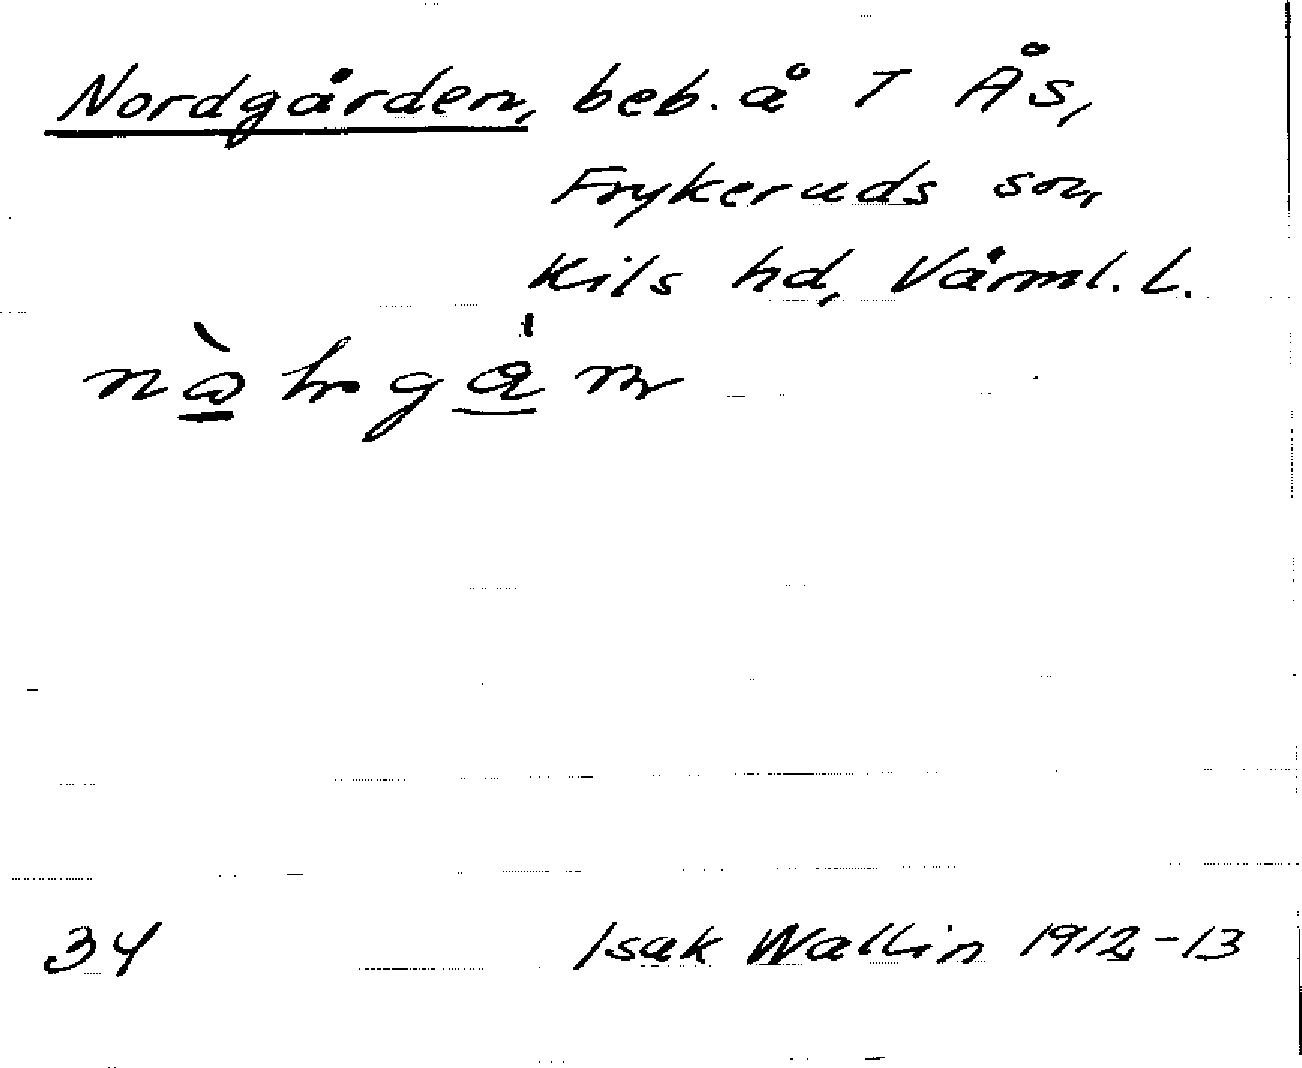 Nordgården, beb. å T Ås,
Frykeruds sn,
Kils hd, Värml. l.
34 Isak Wallin 1912-13